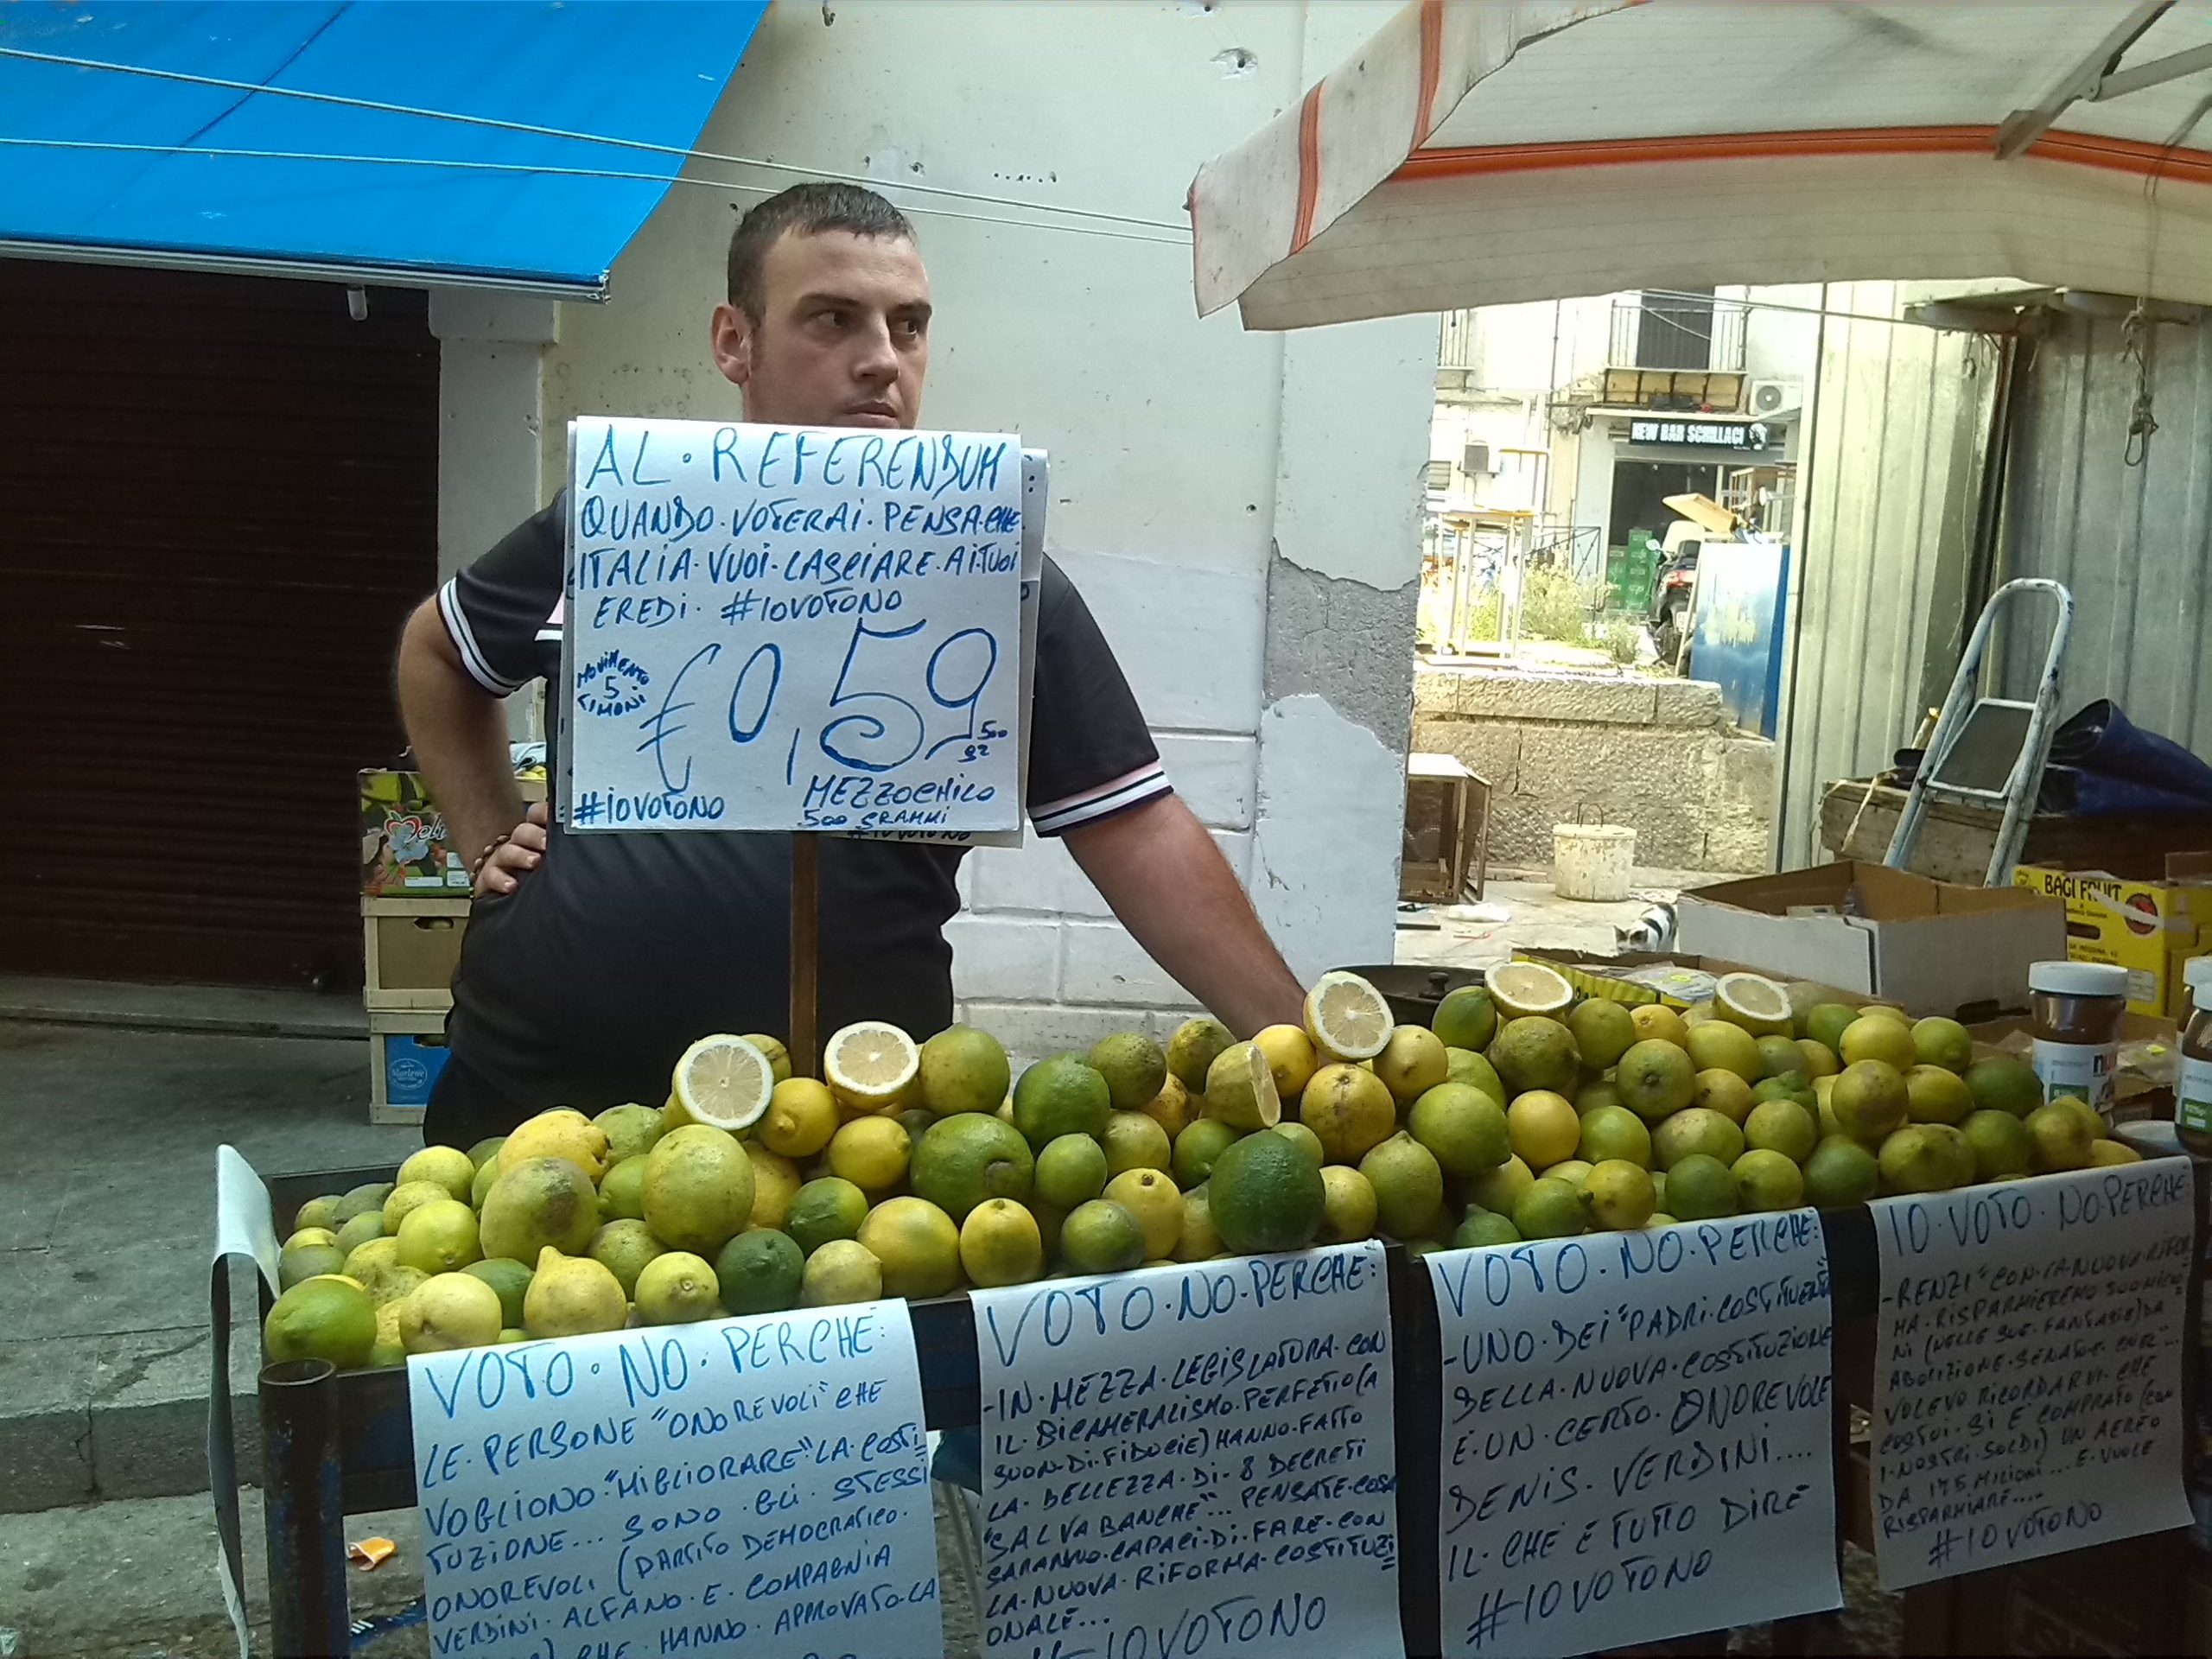 AL · REFERENDUM :
QUANDO · VOTERAI · PENSA · CHE
ITALIA · VUOI · LASCIARE · AI TUOI
EREDI · #IOVOTONO
MOVIMENTO
5
LIMONI
€ 0,59
500
gr
#IOVOTONO
MEZZOCHILO
500 GRAMMI
#IOVOTONO
NEW BAR SCHILLACI
BAGI FRUIT
Marlene
VOTO · NO · PERCHÉ:
LE · PERSONE "ONOREVOLI" CHE
VOGLIONO "MIGLIORARE" LA · COSTI=
TUZIONE... SONO · GLI · STESSI
ONOREVOLI (PARTITO DEMOCRATICO ·
VERDINI · ALFANO · E · COMPAGNIA
CHE · HANNO · APPROVATO · LA
VOTO · NO · PERCHE:
- IN · MEZZA · LEGISLATURA · CON
IL · BICAMERALISMO · PERFETTO (A
SUON · DI · FIDUCIE) HANNO · FATTO
LA · BELLEZZA · DI · 8 DECRETI
"SALVA BANCHE"... PENSATE · COSA
SARANNO · CAPACI · DI · FARE · CON
LA · NUOVA · RIFORMA · COSTITUZI=
ONALE...
#IOVOTONO
VOTO · NO · PERCHE:
- UNO · DEI "PADRI · COSTITUENTI"
DELLA · NUOVA · COSTITUZIONE
E · UN · CERTO · ONOREVOLE
DENIS · VERDINI....
IL · CHE È TUTTO DIRE
#IOVOTONO
IO · VOTO · NO · PERCHE
- RENZI "CON · LA · NUOVA · RIFOR
MA · RISPARMIEREMO 500 MILIO
NI (NELLE SUE · FANTASIE) DA
ABOLIZIONE · SENATO E CNEL"...
VOLEVO RICORDARVI · CHE
COSTUI · SI E' COMPRATO (CON
I · NOSTRI · SOLDI) UN AEREO
DA 175 MILIONI... E · VUOLE
RISPARMIARE.....
#IOVOTONO